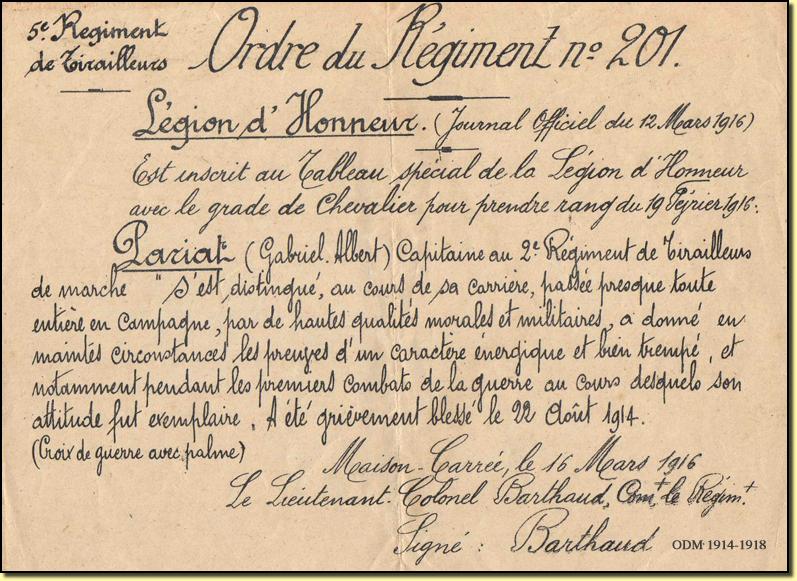 5e Regiment
de Tirailleurs
Ordre du Régiment no 201.
Légion d'Honneur. (Journal Officiel du 12 Mars 1916)
Est inscrit au Tableau spécial de la Légion d'Honneur
avec le grade de Chevalier pour prendre rang du 19 Février 1916:
Pariat (Gabriel. Albert) Capitaine au 2e Régiment de Tirailleurs
de marche "S'est distingué, au cours de sa carrière, passée presque toute
entière en Campagne, par de hautes qualités morales et militaires, a donné en
maintes circonstances les preuves d'un caractère énergique et bien trempé, et
notamment pendant les premiers combats de la guerre au cours desquels son
attitude fut exemplaire. A été grièvement blessé le 22 Août 1914.
(Croix de guerre avec palme)
Maison-Carrée, le 16 Mars 1916
Le Lieutenant-Colonel Barthaud, Comt le Régimt
Signé : Barthaud
ODM 1914-1918